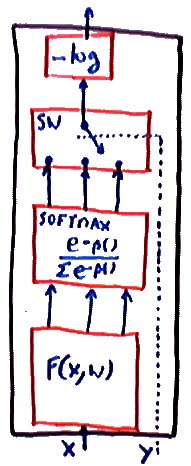 -log
SW
SOFTMAX
e-β()
Σe-β()
F(X,W)
X Y